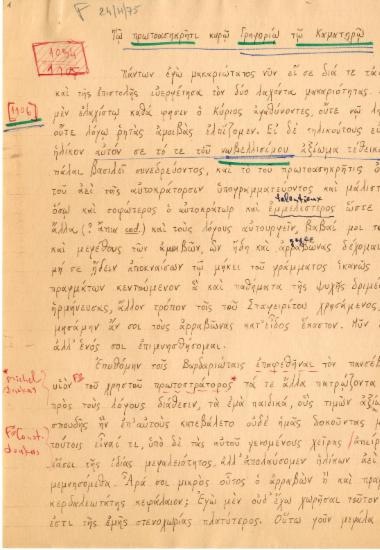 F 24/11/75
Τῷ πρωτοασηκρῆτι κυρῷ Γρηγορίῳ τῷ Καματηρῷ
1094
1105
Πάντων ἐγὼ μακαριώτατος νῦν εἰ σε διά τε τὰς
καὶ τῆς ἐπιστολῆς εὐεργέτησα τὸν δύο λαχόντα μακαριότητας
μὲν ἐλαχίστῳ καθά φησιν ὁ Κύριος ἀγαθύνοντες, οὔτε
1106
οὔτε λόγῳ ῥητὰς ἀμοιβὰς ἐλπίζομεν. Εἰ δὲ τηλικούτους
ἡλίκον αὐτὸν σε τό τε τοῦ νωβελλισίμου ἀξίωμα τέθεικε
πάλαι βασιλεῖ συνεδρεύοντος, καὶ τὸ τοῦ πρωτοασηκρῆτις
τοῦ ἀεὶ τῆς αὐτοκράτορσιν ὑπογραμματεύοντος καὶ μάλιστ
ὅσῳ καὶ σοφώτερος ὁ αὐτοκράτωρ καὶ ἐμμελέστερος ὥστε
ἄλλα (? ἅπω cod.) καὶ τοὺς λόγους αὐτουργεῖν, βαβαί μοι
καὶ μεγέθους τῶν ἀμοιβῶν, ὧν ἤδη καὶ ἀρραβῶνας δέχομαι
μή σε ᾔδειν ἀποκναίσων τῷ μήκει τοῦ γράμματος ἱκανῶς
πραγμάτων κεντούμενον ἃ καὶ παθήματα τῆς ψυχῆς
ἡρμήνευσας, ἄλλον τρόπον τοῖς τοῦ Σταγειρίτου χρησάμενος
μησάμην ἄν σοι τοὺς ἀρραβῶνας κατ' εἶδος ἕκαστον. Νῦν
ἀλλ' ἑνός σοι ἐπιμνησθήσομαι.
Ἐπυθόμην τοῖς Βαρδαριώταις ἐπαφεθῆναι τὸν πανσέβ
Michel
doukas
υἱὸν τοῦ χρηστοῦ πρωτοστράτορος τά τε ἄλλα πατρῴζοντα
πρὸς τοὺς λόγους διάθεσιν, τὰ ἐμὰ παιδικά, οὓς τιμῶν
Const.
doukas
σπουδῆς ἣν ἐπ' αὐτοὺς κατεβάλετο οὐδὲ ἡμᾶς δοκοῦντας
τούτοις εἶναί τι, ὑπὸ δὲ τὰς αὐτοῦ γενομένους χεῖρας
τῆς ἰδίας μεγαλειότητος, ἀλλ' ἀπολαύσομεν ἡλίκων ἀεὶ
μεμνησόμεθα. Ἆρά σοι μικρὸς οὗτος ὁ ἀρραβὼν ἢ καὶ
κερδαλεωτάτης κεφάλαιον; Ἐγὼ μὲν οὐδ' ἔχω χωρῆσαι
ἐστι τῆς ἐμῆς στενοχωρίας πλατύτερος. Οὕτω γοῦν μεγάλα